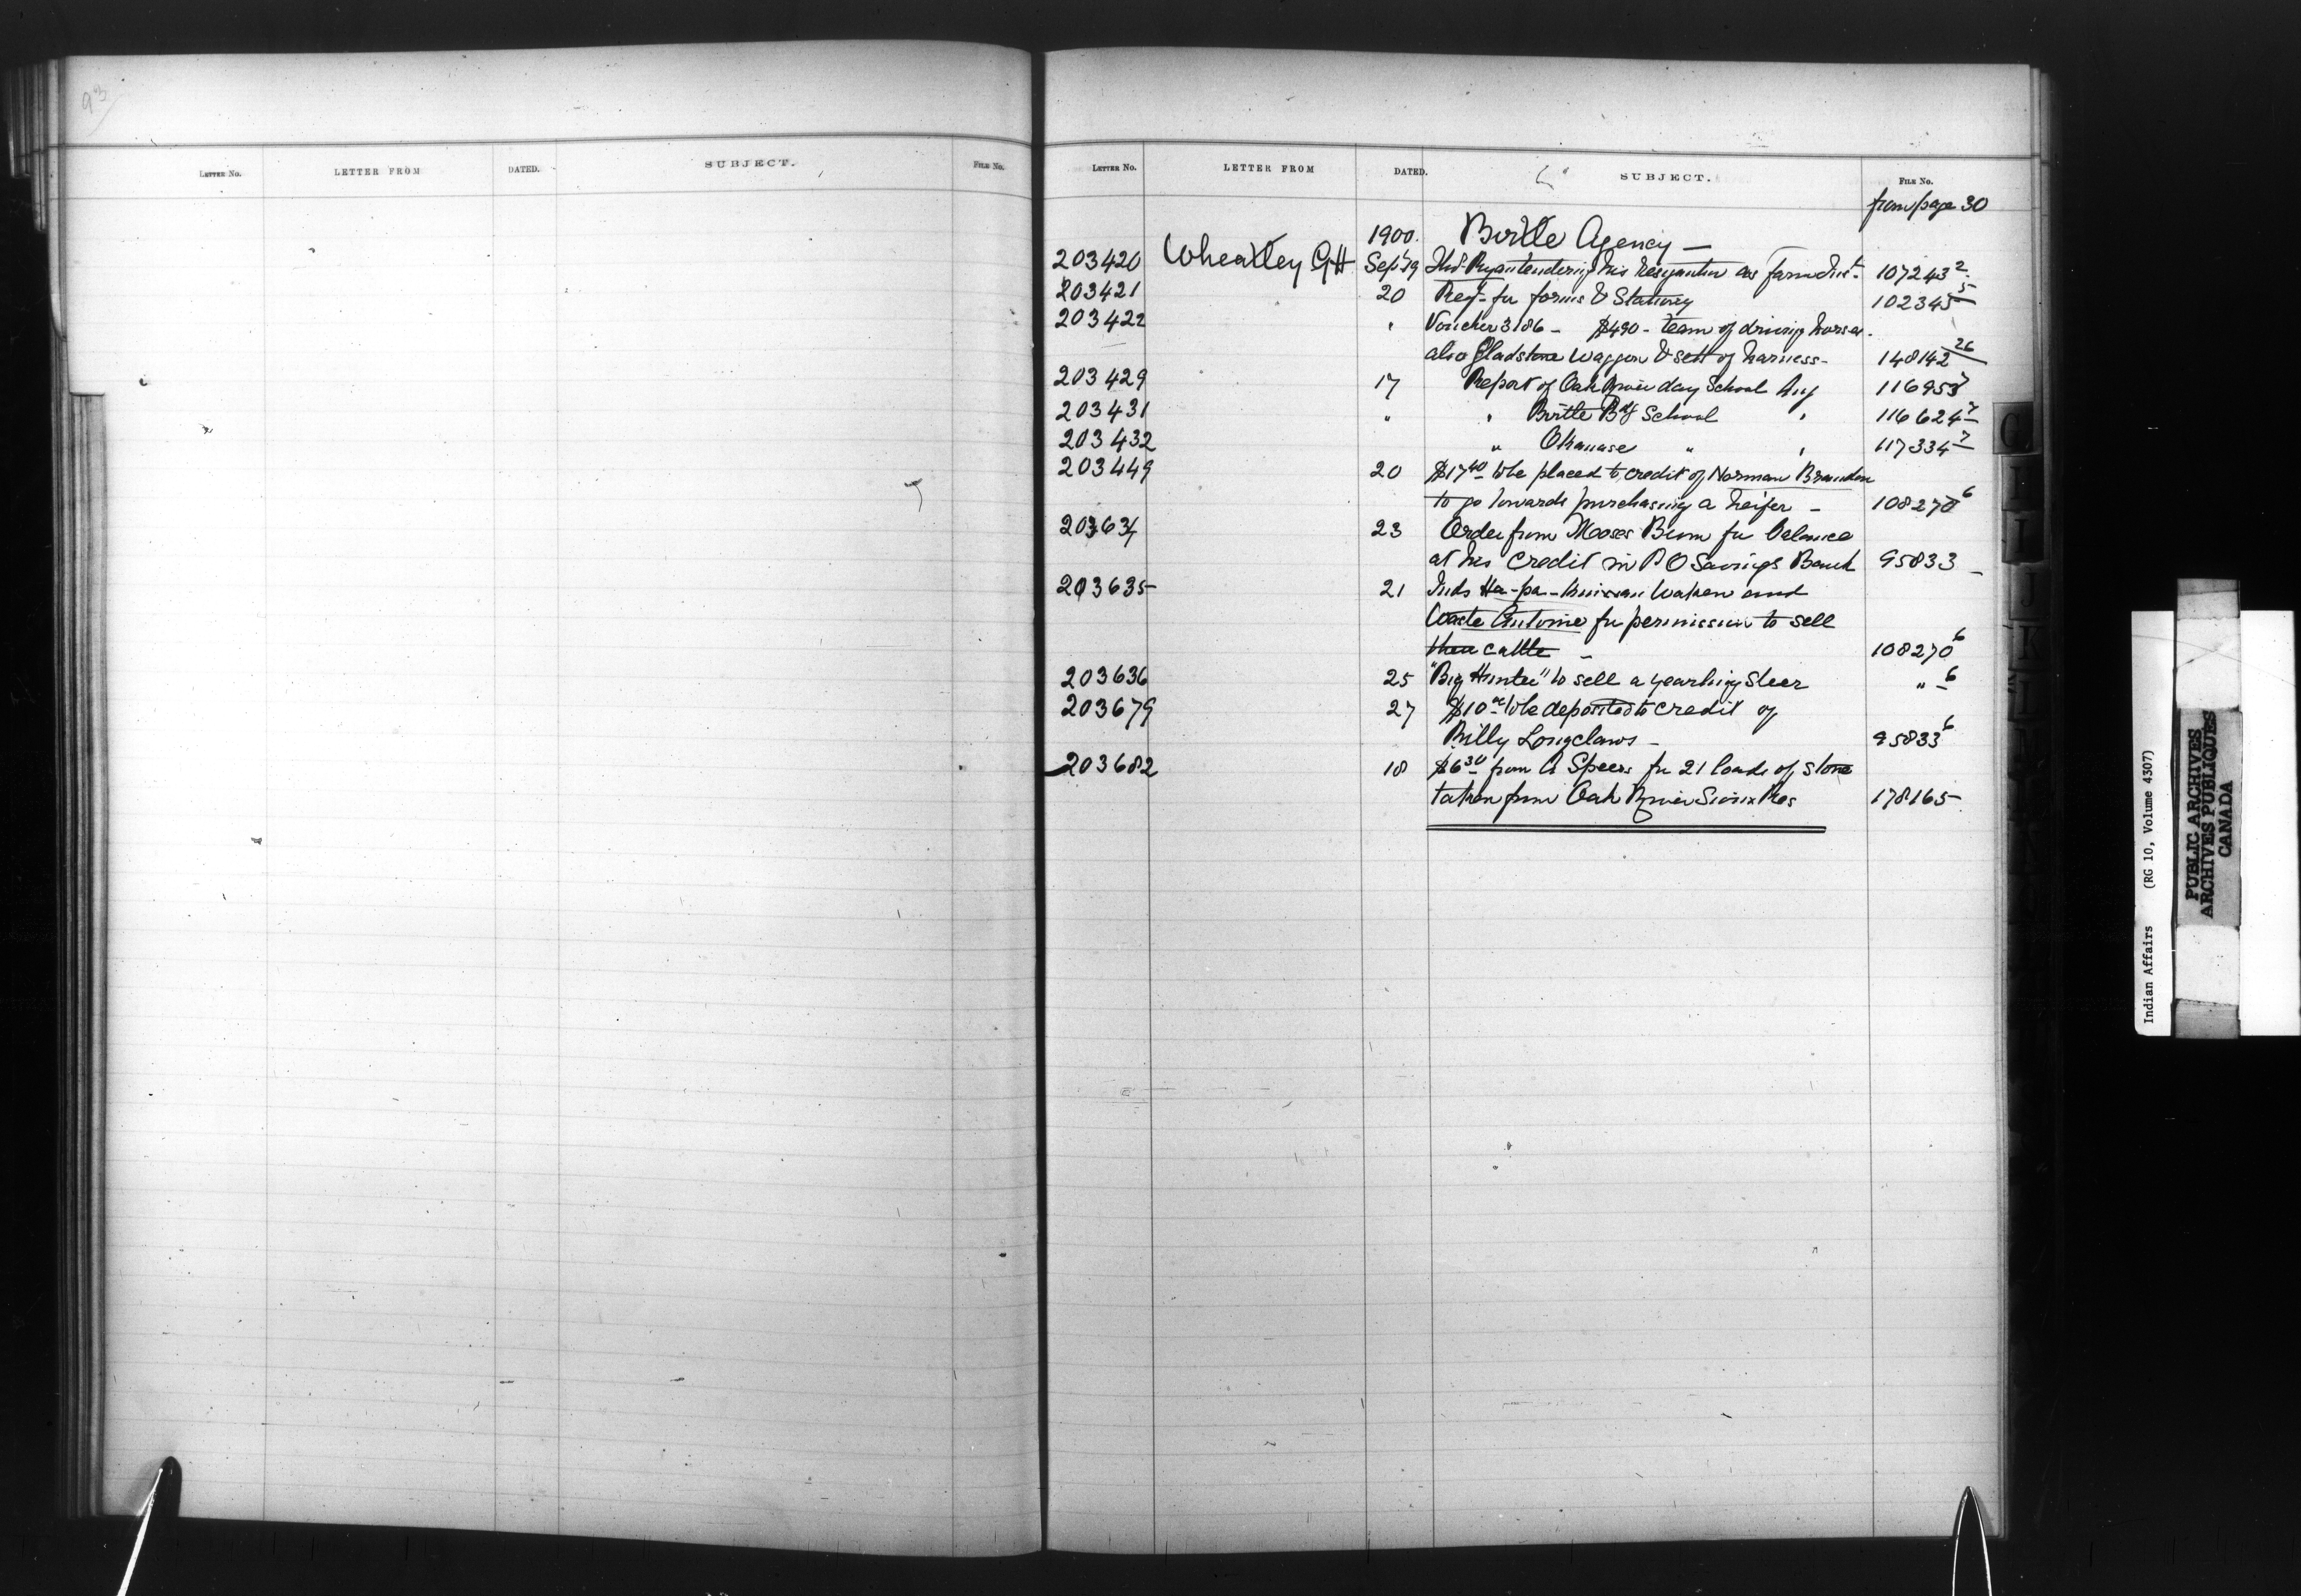 93
LETTER NO. LETTER FROM DATED. SUBJECT. FILE NO.
LETTER NO. LETTER FROM DATED. SUBJECT. FILE NO.
from page 30
1900. Birtle Agency —
203420 Wheatley G H Sept 19 Thos Ryan tendering his resignation as farm Inst. 107243 2
203421 20 Reqt for forms & Stationery 102345 5
203422 " Voucher 3186 - $490 - team of driving horses.
also Gladstone waggon & sett of harness - 148142 26
203429 17 Report of Oak River day School Aug 116953 7
203431 " " Birtle Bdg School " 116624 7
203432 " Okanase " " 117334 7
203449 20 $17 40 to be placed to credit of Norman Brandon
to go towards purchasing a heifer - 108270 6
203634 23 Order from Mooses Bunn for balance
at his credit in P O Savings Bank 95833 -
203635 21 Inds Ha-pa- Waken and
Waste Antoine for permission to sell
their cattle - 108270 6
203636 25 "Big Hunter" to sell a yearling steer " - 6
203679 27 $10 00 to be deposited to credit of
Billy Longclaws - 95833 6
203682 18 $6 30 from A Speers for 21 loads of stone
taken from Oak River Sioux Res 178165
G
H
I
J
K
L
Indian Affairs (RG 10, Volume 4307)
PUBLIC ARCHIVES
ARCHIVES PUBLIQUES
CANADA